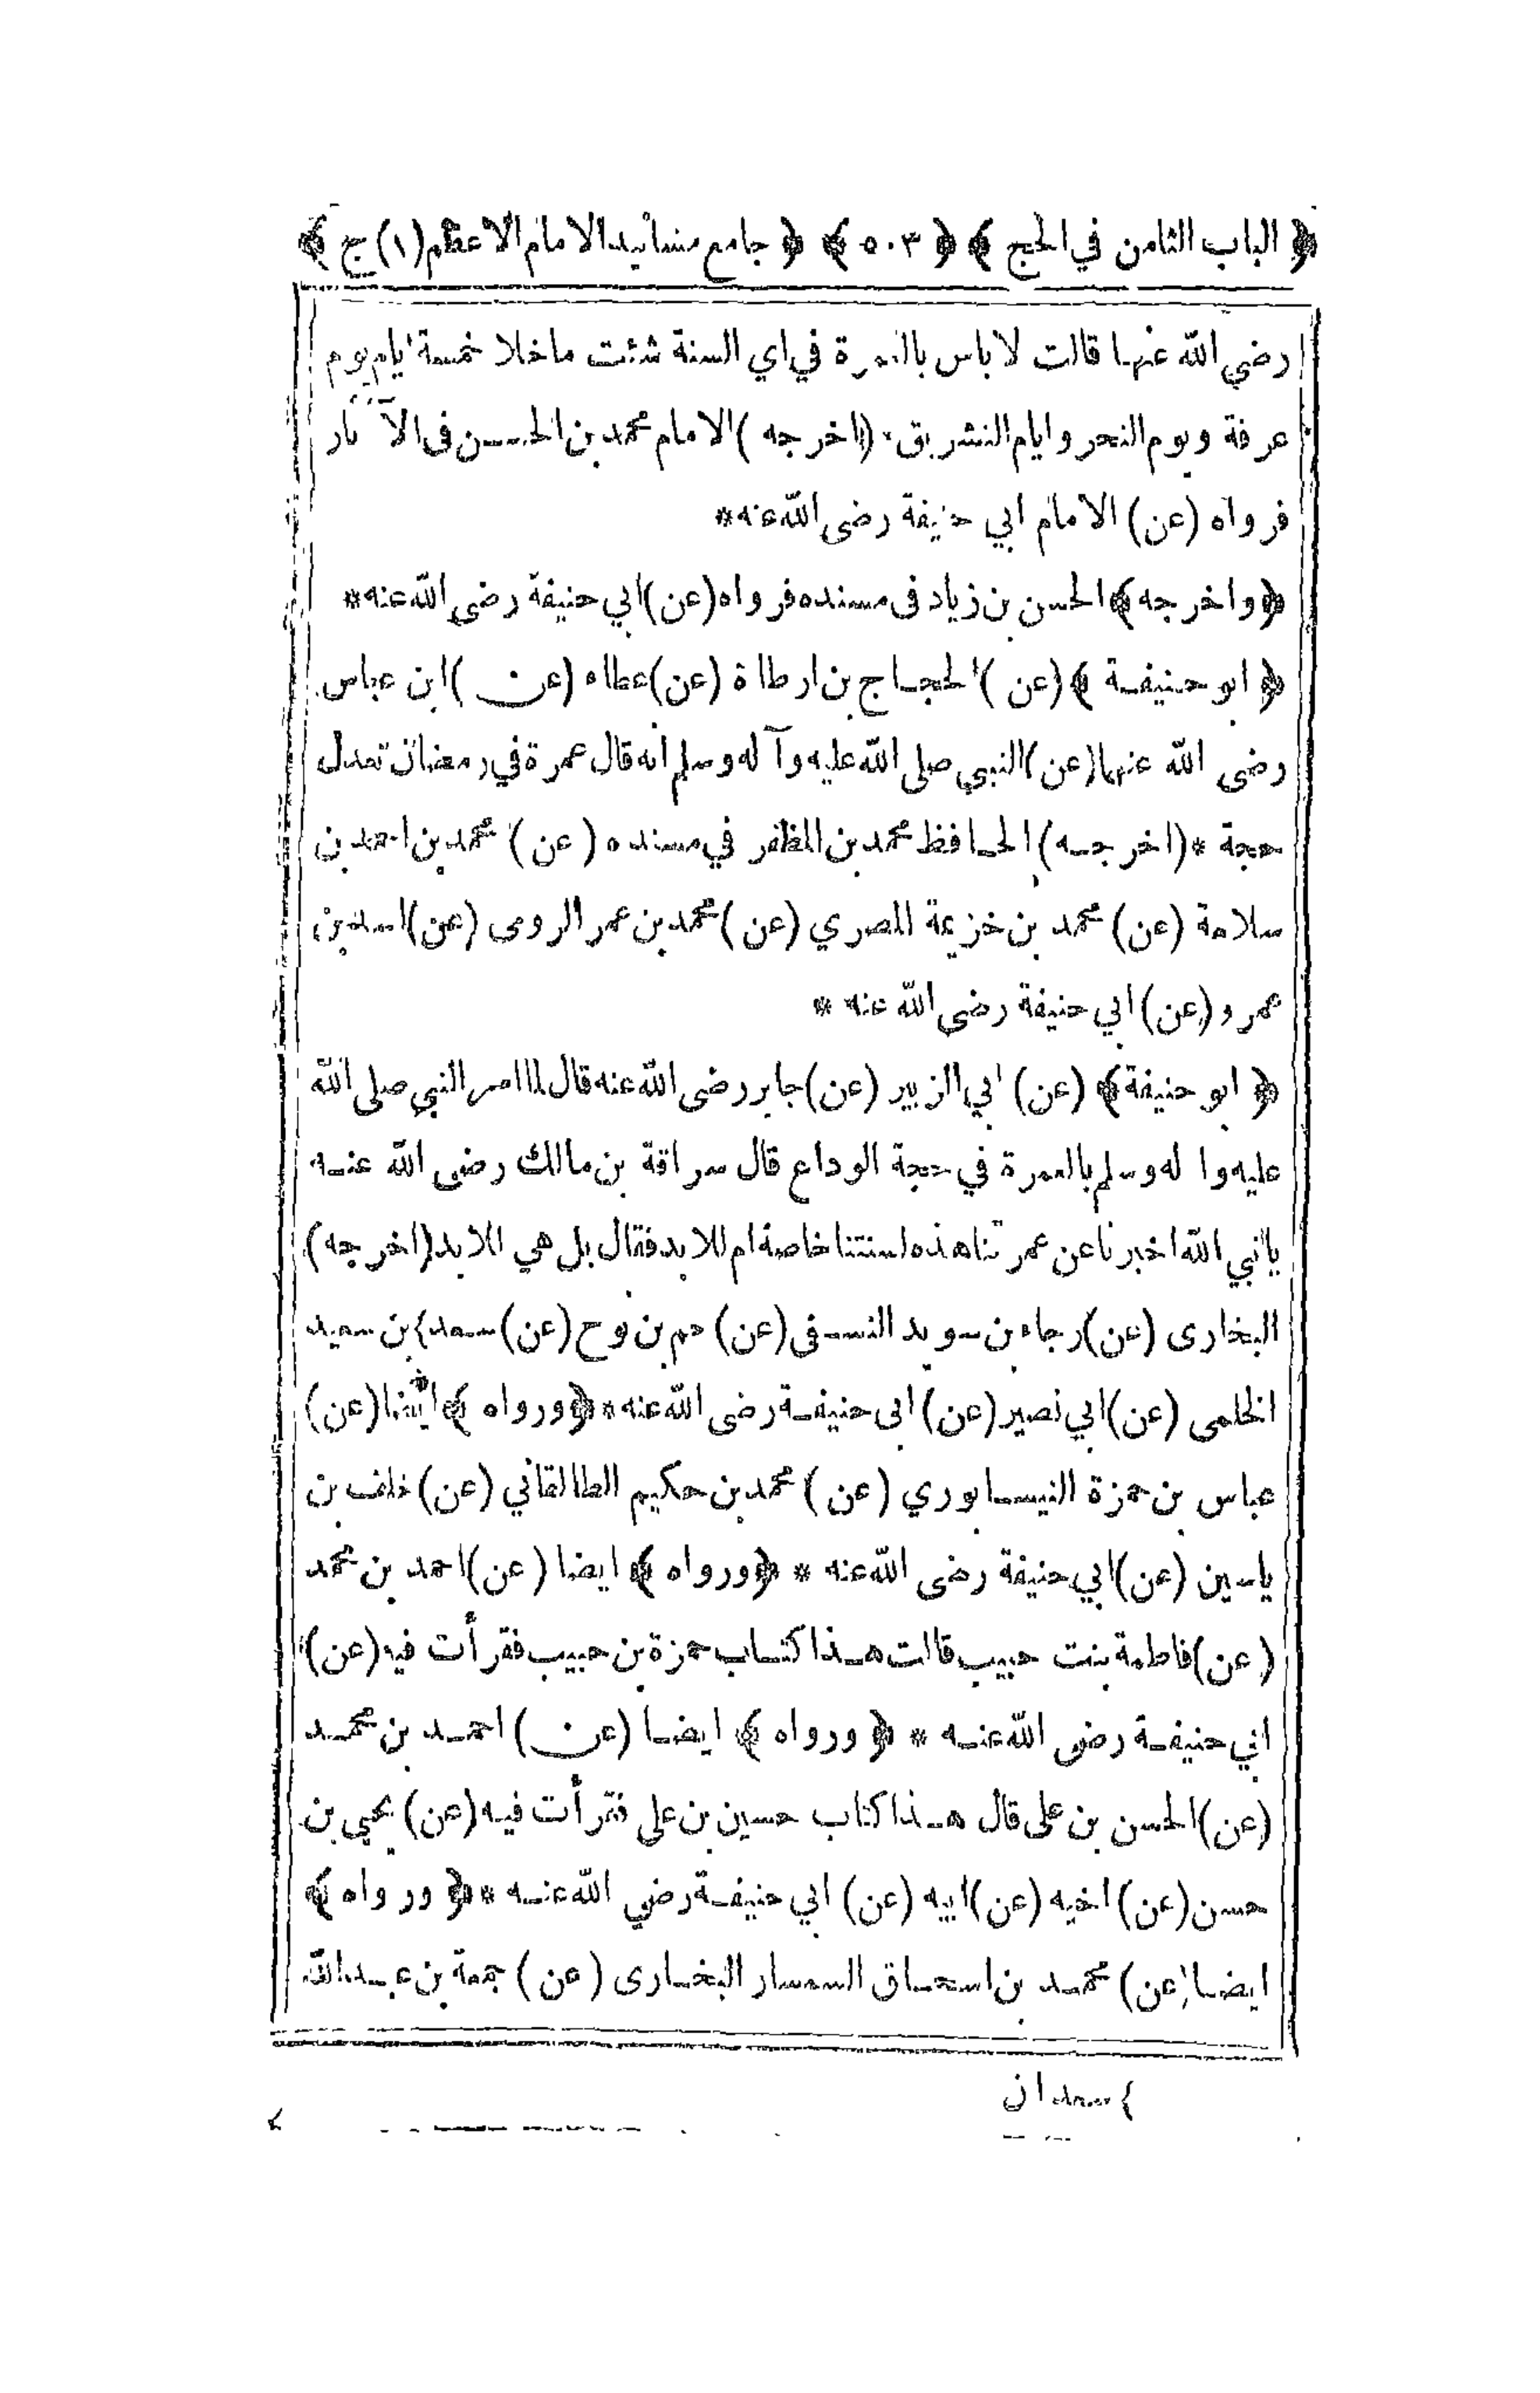 ﴿ الباب الثامن في الحج ﴾ ﴿ ٥٠٣ ﴾ ﴿ جامع مسانيد الامام الاعظم (١) ج ﴾
رضي الله عنها قالت لا باس بالعمرة في اي السنة شئت ما خلا خمسة ايام يوم
عرفة ويوم النحر وايام التشريق * (اخرجه) الامام محمد بن الحسن فى الآثار
فرواه (عن) الامام ابي حنيفة رضى الله عنه *
﴿ واخرجه ﴾ الحسن بن زياد فى مسنده فرواه (عن) ابي حنيفة رضي الله عنه *
﴿ ابو حنيفة ﴾ (عن) الحجاج بن ارطاة (عن) عطاء (عن) ابن عباس
رضى الله عنهما (عن) النبي صلى الله عليه وآله وسلم انه قال عمرة في رمضان تعدل
حجة * (اخرجه) الحافظ محمد بن المظفر في مسنده (عن) محمد بن احمد بن
سلامة (عن) محمد بن خزيمة المصري (عن) محمد بن عمر الرومى (عن) اسد بن
عمرو (عن) ابي حنيفة رضى الله عنه *
﴿ ابو حنيفة ﴾ (عن) ابي الزبير (عن) جابر رضى الله عنه قال لما امر النبي صلى الله
عليه وآله وسلم بالعمرة في حجة الوداع قال سراقة بن مالك رضى الله عنه
يا نبي الله اخبرنا عن عمرتنا هذه لسنتنا خاصة ام للابد فقال بل هي للابد (اخرجه)
البخارى (عن) رجاء بن سويد النسفى (عن) حم بن نوح (عن) سعد} بن سعيد
الخلمى (عن) ابي نصير (عن) ابى حنيفة رضى الله عنه * ﴿ ورواه ﴾ ايضا (عن)
عباس بن حمزة النيسابوري (عن) محمد بن حكيم الطالقاني (عن) خلف بن
ياسين (عن) ابي حنيفة رضى الله عنه * ﴿ ورواه ﴾ ايضا (عن) احمد بن محمد
(عن) فاطمة بنت حبيب قالت هذا كتاب حمزة بن حبيب فقرأت فيه (عن)
ابي حنيفة رضى الله عنه * ﴿ ورواه ﴾ ايضا (عن) احمد بن محمد
(عن) الحسن بن على قال هذا كتاب حسين بن على فقرأت فيه (عن) يحيي بن
حسن (عن) اخيه (عن) ابيه (عن) ابي حنيفة رضي الله عنه * ﴿ ورواه ﴾
ايضا (عن) محمد بن اسحاق السمسار البخارى (عن) جمعة بن عبد الله
} سعدان